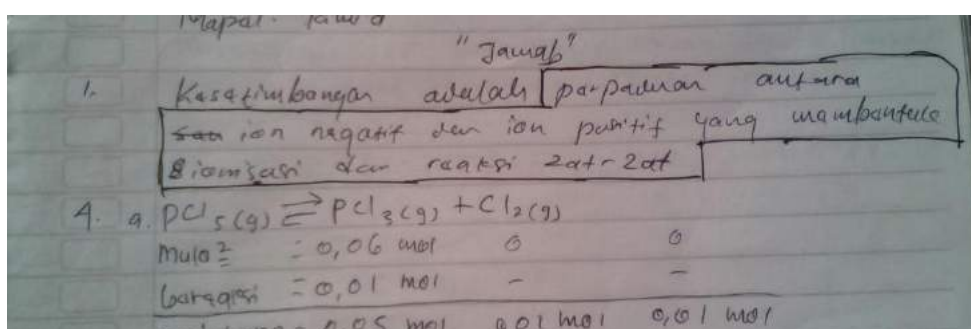 Mapal.
"Jawab"
1. Kesetimbangan adalah perpaduan antara
ion negatif dan ion positif yang membentuk
ionisasi dan reaksi zat-zat
4. a. PCl5(g) ⇌ PCl3(g) + Cl2(g)
Mula2 = 0,06 mol 0 0
bereaksi = 0,01 mol - -
0,05 mol 0,01 mol 0,01 mol